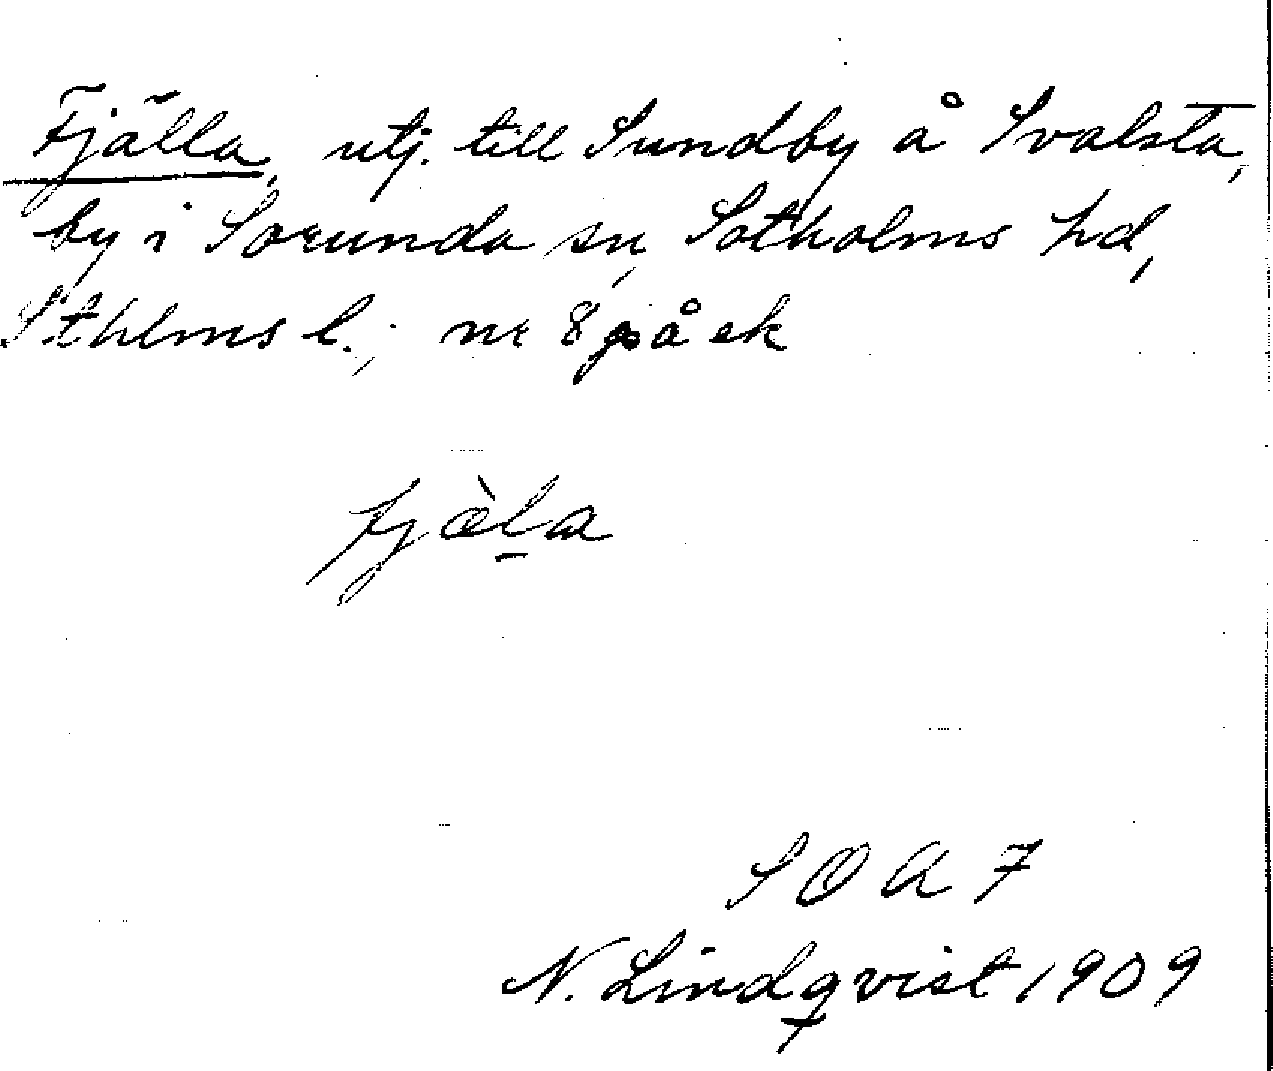 Fjälla, utj. till Sundby å Svalsta,
by i Sorunda sn, Sotholms hd,
Sthlms l.; nr 8 på ek
fjæ̀la
SOA 7
N. Lindqvist 1909